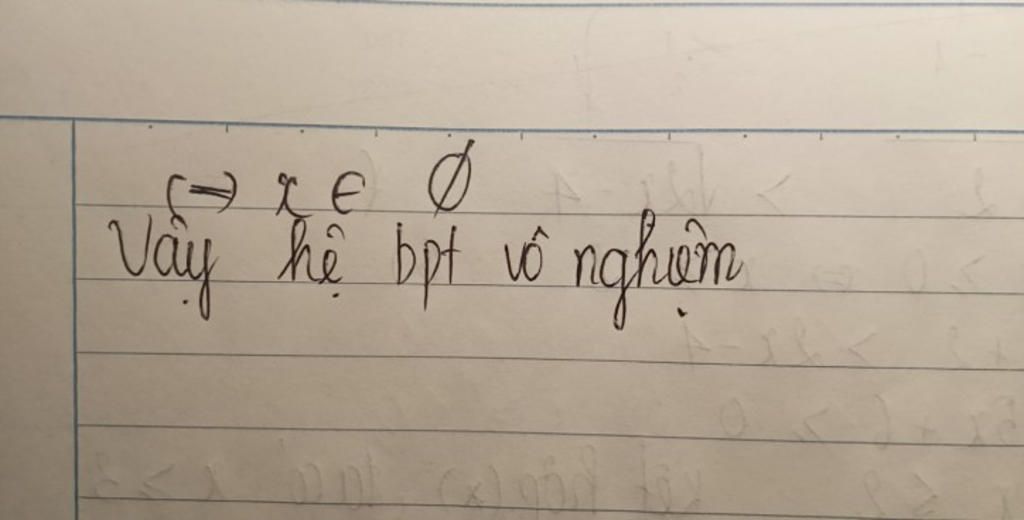 ⇔ x ∈ ∅
Vậy hệ bpt vô nghiệm